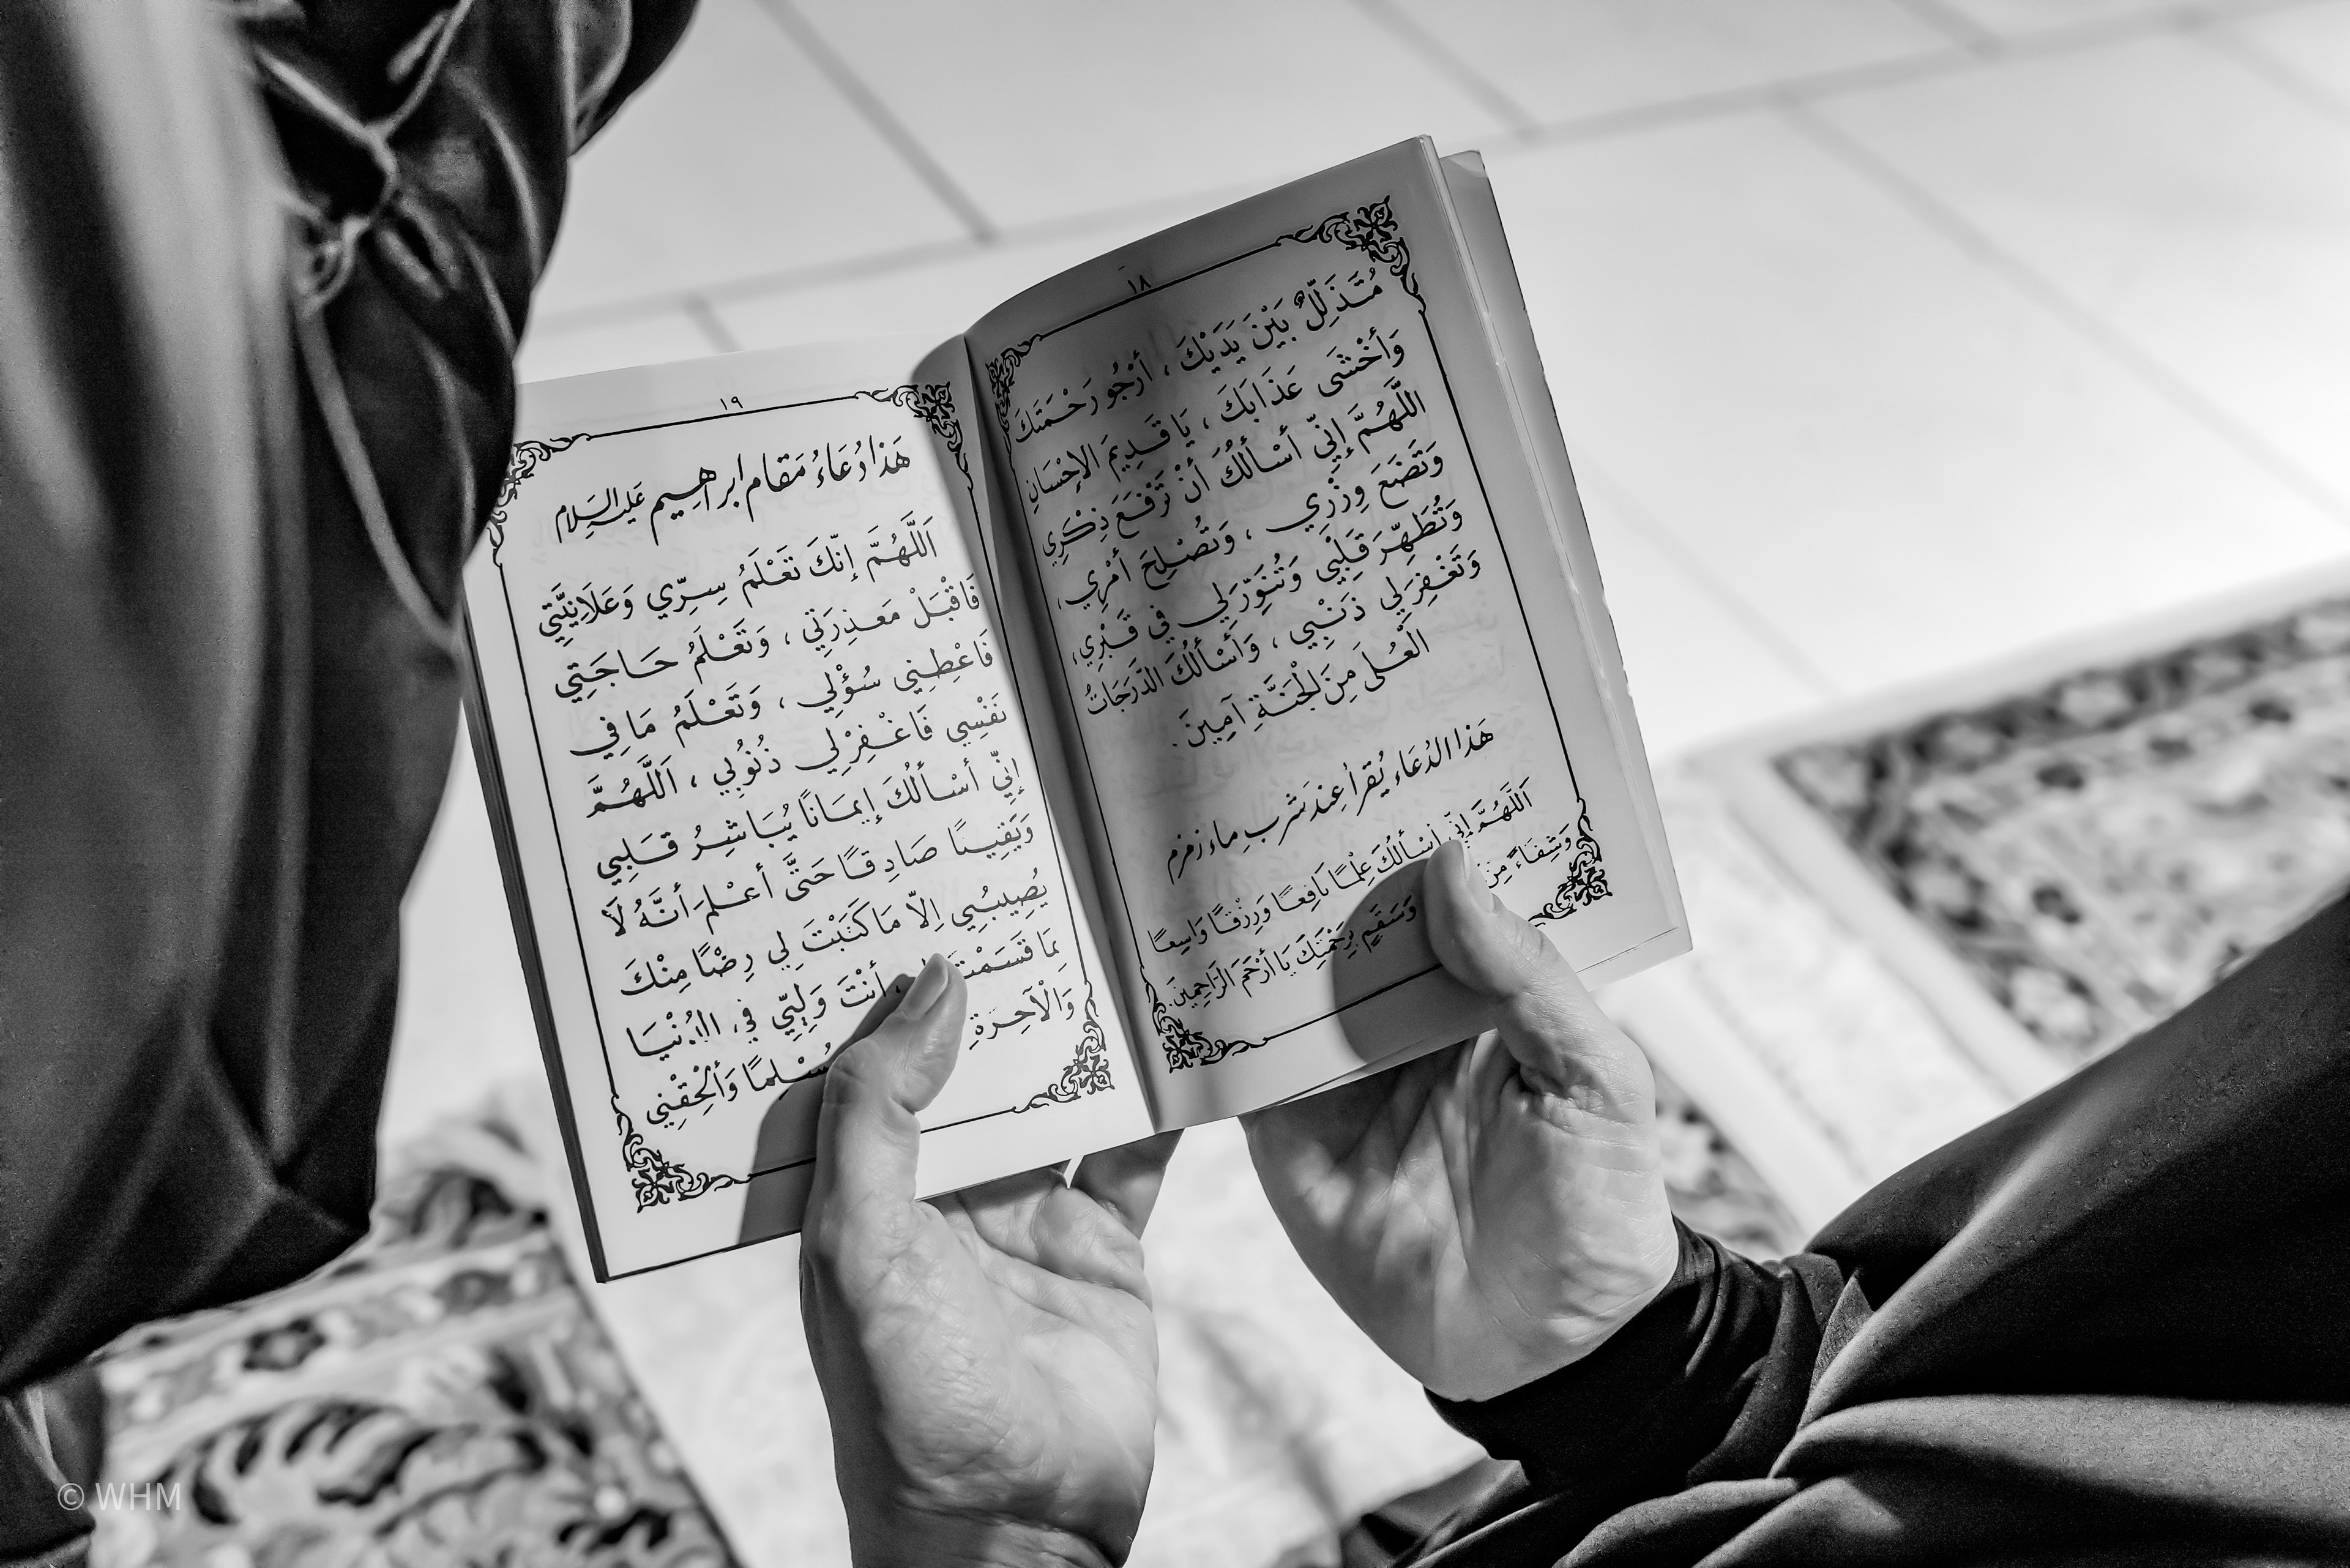 ١٨
مُتَذَلِّلٌ بَيْنَ يَدَيْكَ ، أَرْجُو رَحْمَتَكَ
وَأَخْشَى عَذَابَكَ ، يَا قَدِيمَ الإِحْسَانِ
اللَّهُمَّ إِنِّي أَسْأَلُكَ أَنْ تَرْفَعَ ذِكْرِي
وَتَضَعَ وِزْرِي ، وَتُصْلِحَ أَمْرِي ،
وَتُطَهِّرَ قَلْبِي وَتُنَوِّرَ لِي فِي قَبْرِي ،
وَتَغْفِرَ لِي ذَنْبِي ، وَأَسْأَلُكَ الدَّرَجَاتُ
الْعُلَى مِنَ الْجَنَّةِ آمِينَ .
هَذَا الدُعَاء يُقرأ عِندَ شرب ماء زمزم
اَللَّهُمَّ إِنِّي أَسْأَلُكَ عِلْمًا نَافِعًا وَرِزْقًا وَاسِعًا
وَشِفَاءً مِنْ وَسَقَمٍ بِرَحْمَتِكَ يَا أَرْحَمَ الرَّاحِمِينَ
١٩
هَذَا دُعَاءُ مَقَام ابراهِيم عَلَيهِ السَلام
اَللَّهُمَّ إِنَّكَ تَعْلَمُ سِرِّي وَعَلَانِيَّتِي
فَاقْبَلْ مَعْذِرَتِي ، وَتَعْلَمُ حَاجَتِي
فَاعْطِنِي سُؤْلِي ، وَتَعْلَمُ مَا فِي
نَفْسِي فَاغْفِرْ لِي ذُنُوبِي ، اَللَّهُمَّ
إِنِّي أَسْأَلُكَ إِيمَانًا يُبَاشِرُ قَلْبِي
وَيَقِينًا صَادِقًا حَتَّى أَعْلَمَ أَنَّهُ لَا
يُصِيبُنِي إِلاَّ مَا كَتَبْتَ لِي رِضًا مِنْكَ
بِمَا قَسَمْتَ أَنْتَ وَلِيِّي فِي الدُّنْيَا
وَالْآخِرَةِ مُسْلِمًا وَأَلْحِقْنِي
© WHM